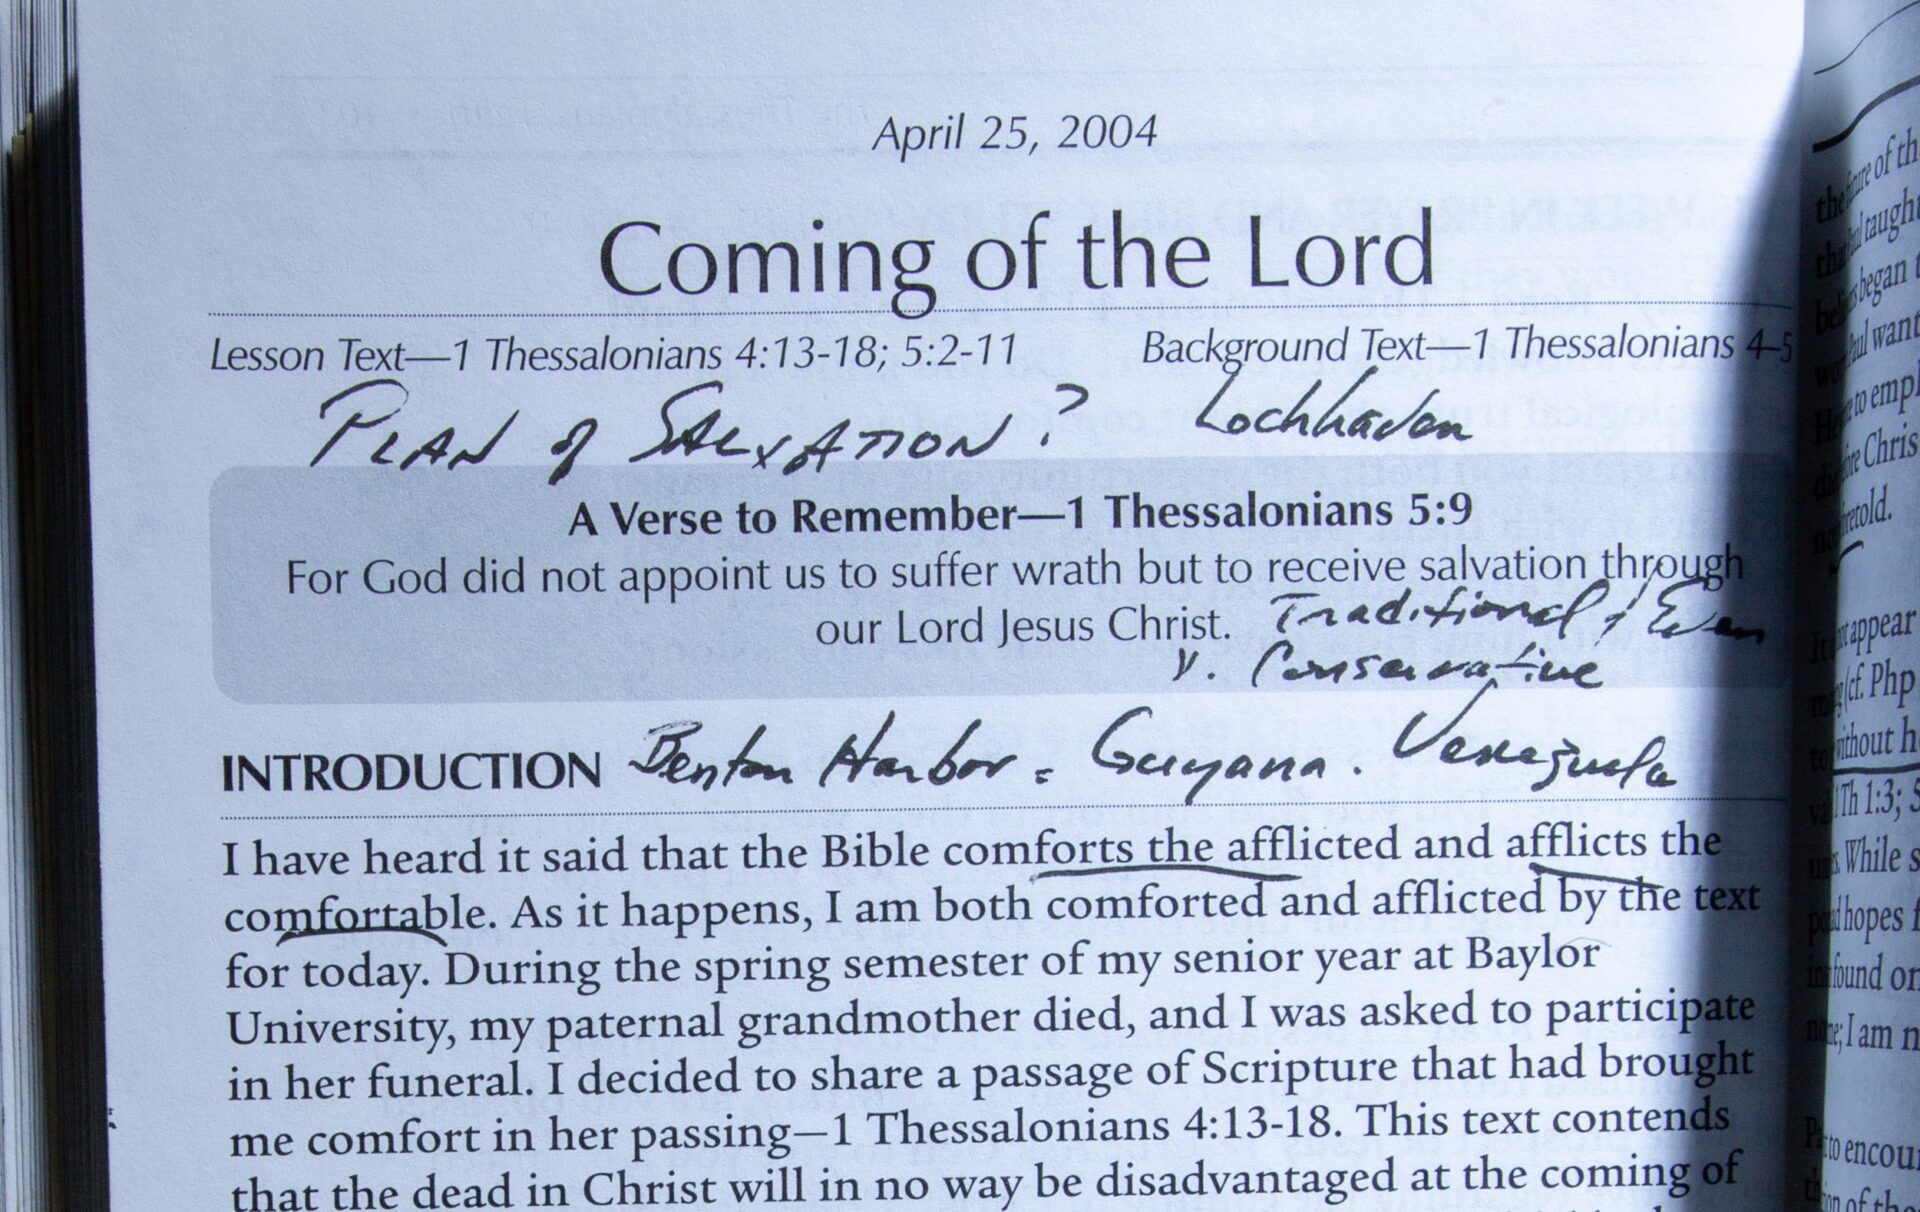 April 25, 2004
Coming of the Lord
Lesson Text—1 Thessalonians 4:13-18; 5:2-11 Background Text—1 Thessalonians 4-5
PLAN of SALVATION? Lochhaven
A Verse to Remember—1 Thessalonians 5:9
For God did not appoint us to suffer wrath but to receive salvation through
our Lord Jesus Christ. Traditional
v. Conservative
INTRODUCTION Benton Harbor Guyana. Venezuela
I have heard it said that the Bible comforts the afflicted and afflicts the
comfortable. As it happens, I am both comforted and afflicted by the text
for today. During the spring semester of my senior year at Baylor
University, my paternal grandmother died, and I was asked to participate
in her funeral. I decided to share a passage of Scripture that had brought
me comfort in her passing—1 Thessalonians 4:13-18. This text contends
that the dead in Christ will in no way be disadvantaged at the coming of
of th
taught
began t
want
to empl
Chris
appear
(cf. Php
without h
1Th 1:3; 5
While s
hopes f
found on
I am n
to encou
of the